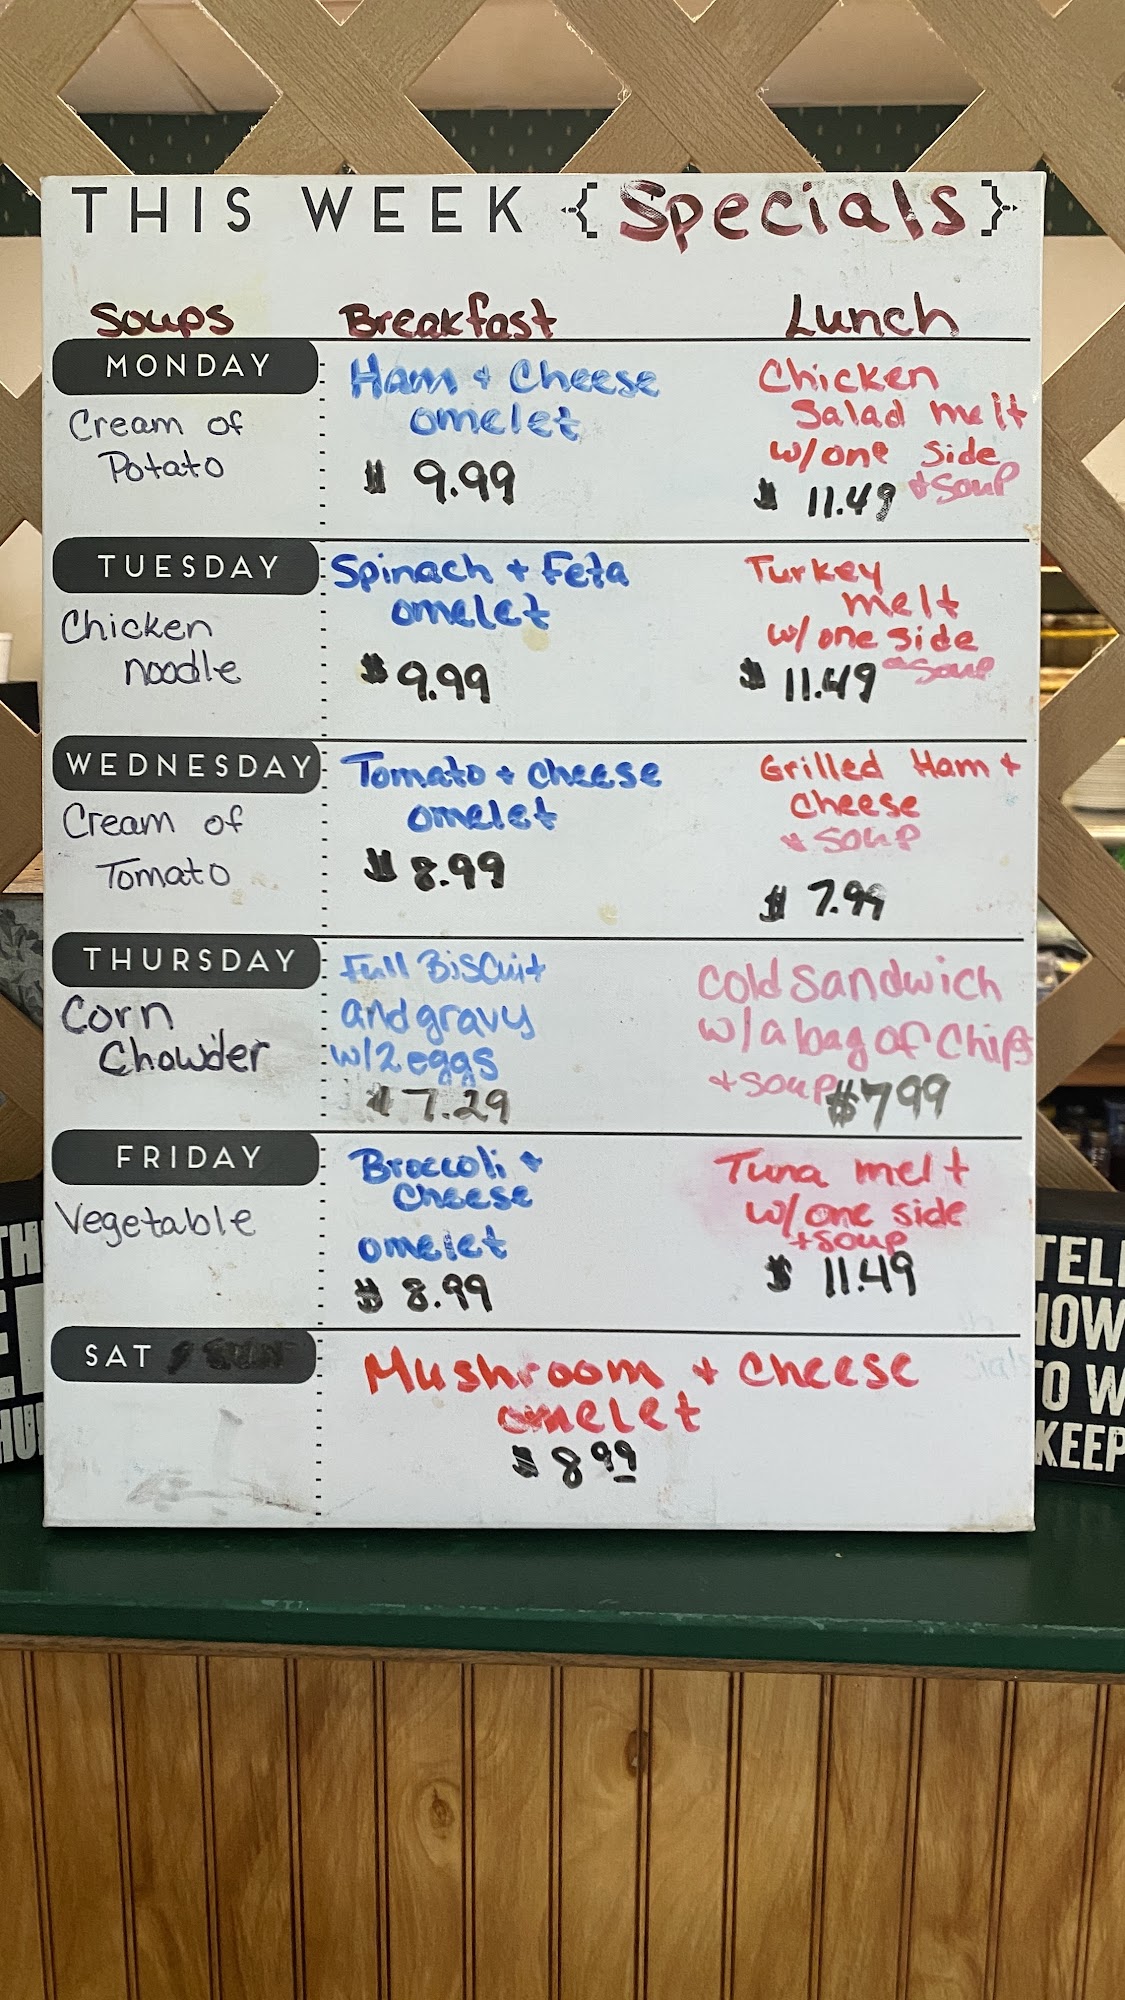 THIS WEEK {Specials}
Soups Breakfast Lunch
MONDAY
Cream of
Potato
Ham + Cheese
omelet
$ 9.99
Chicken
Salad melt
w/one side
+ soup
$ 11.49
TUESDAY
Chicken
noodle
Spinach + Feta
omelet
$ 9.99
Turkey
melt
w/one side
+ soup
$ 11.49
WEDNESDAY
Cream of
Tomato
Tomato + cheese
omelet
$ 8.99
Grilled Ham +
cheese
+ soup
$ 7.99
THURSDAY
Corn
Chowder
Full Biscuit
and gravy
w/2 eggs
$ 7.29
Cold Sandwich
w/a bag of Chips
+ soup $7 99
FRIDAY
Vegetable
Broccoli +
Cheese
omelet
$ 8.99
Tuna melt
w/one side
+ soup
$ 11.49
SAT
Mushroom + cheese
omelet
$ 8 99
TH
HU
TELL
HOW
TO W
KEEP